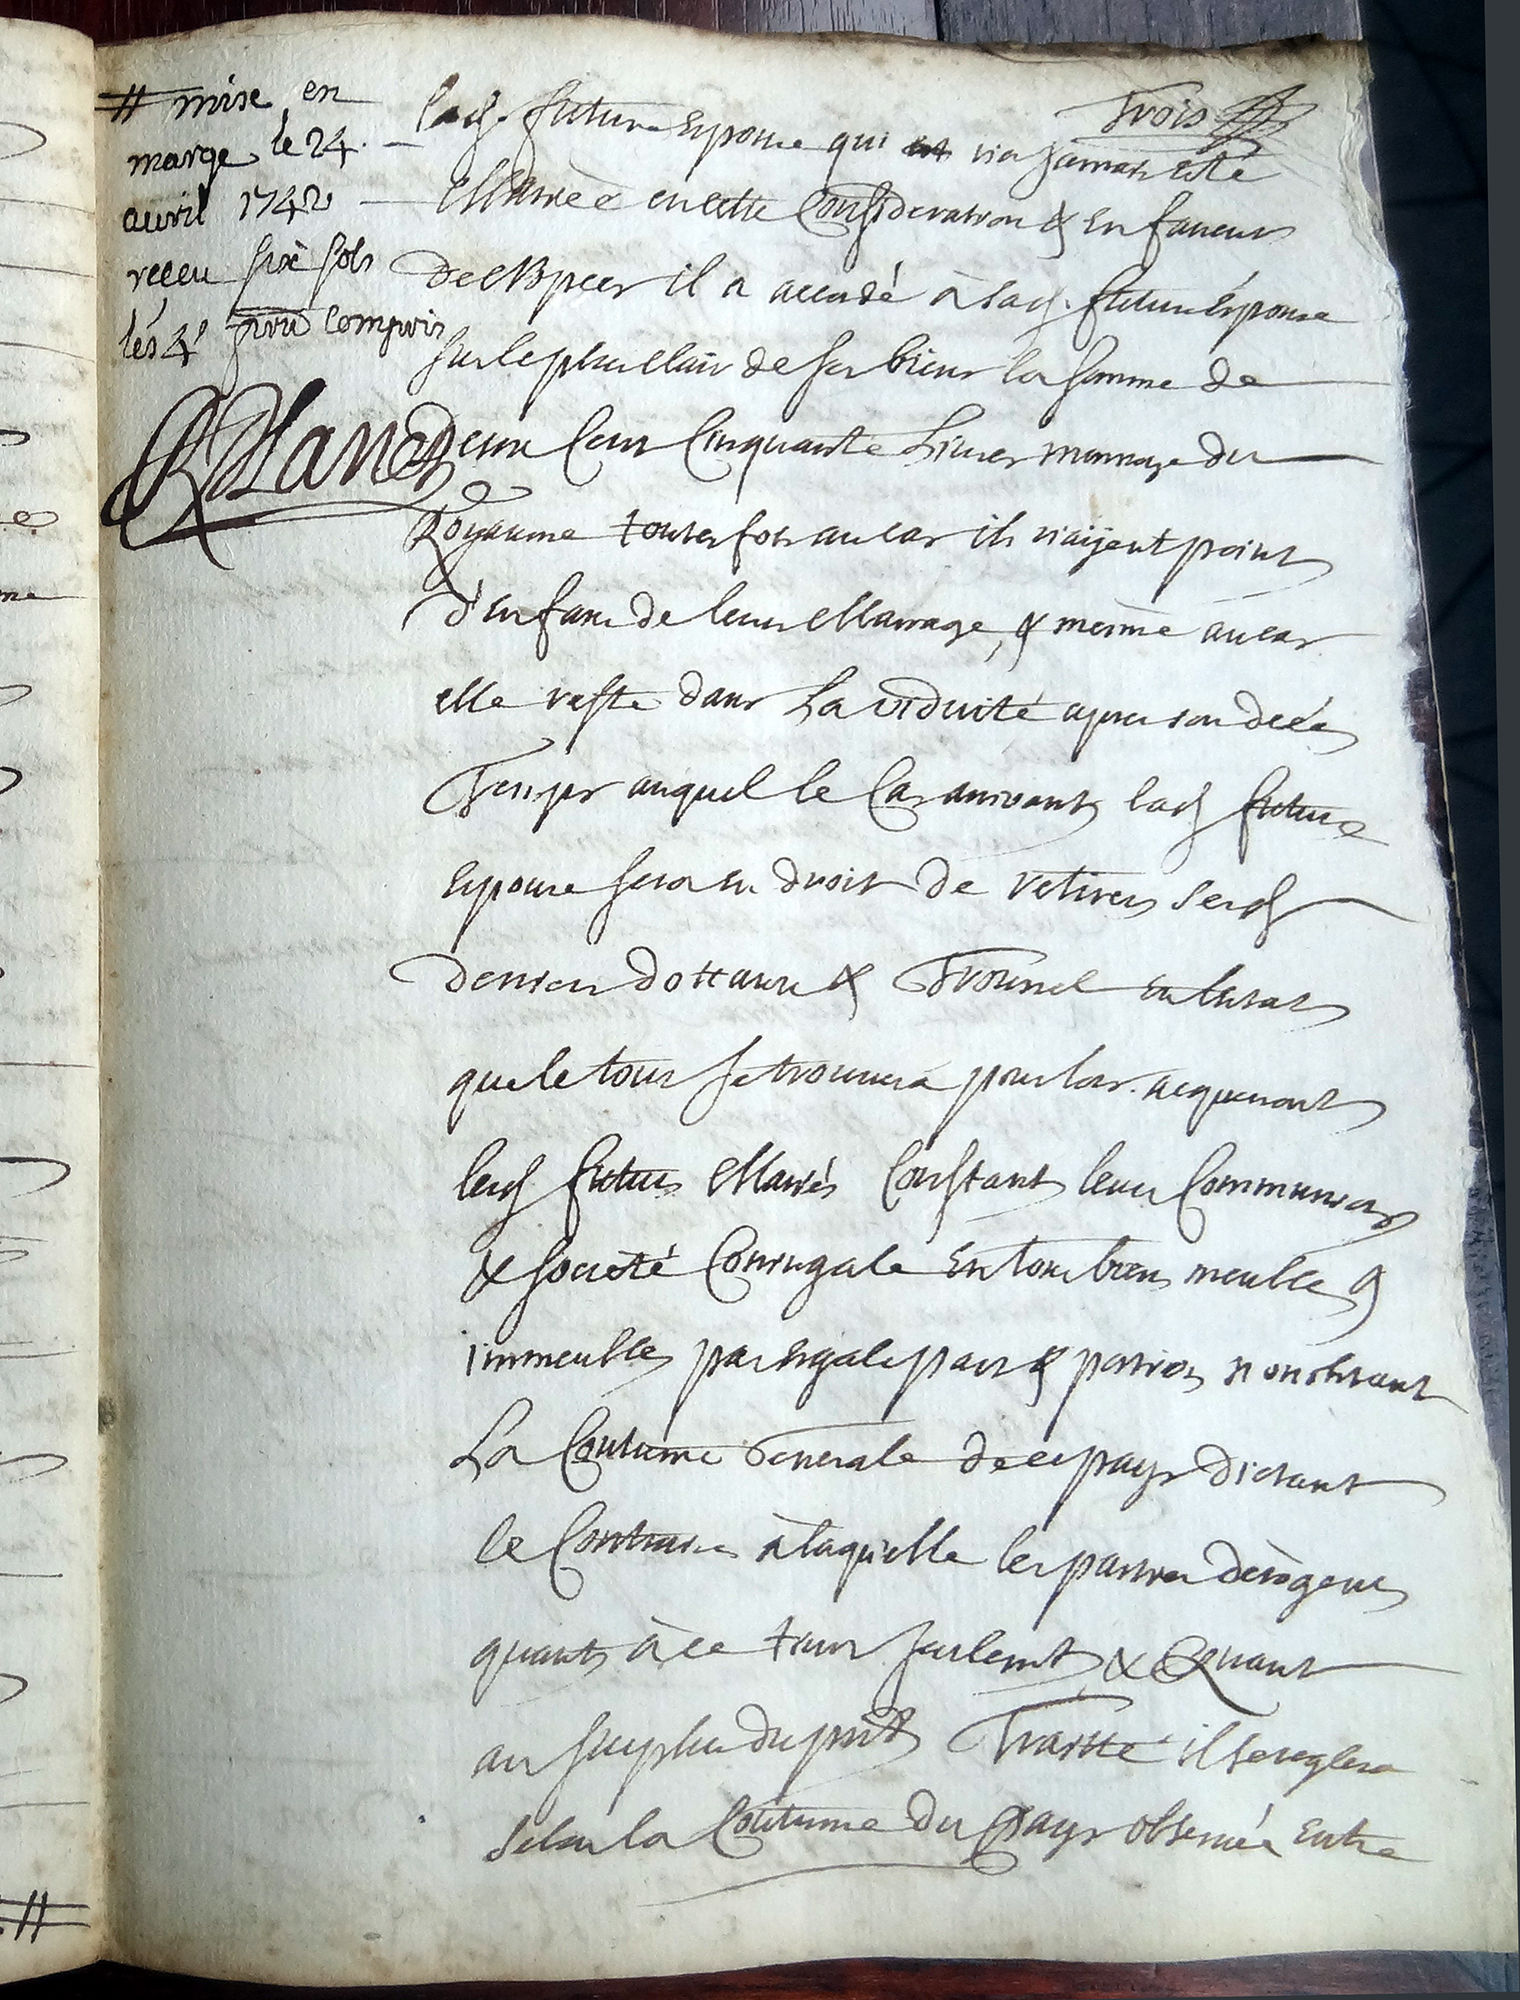 Trois
# mise en
marge le 24.
avril 1742
receu six sols
lés 4s compris
RBlanc
lad. future Epouse qui n'a jamais esté
Mariée en cette Consideration & En faueur
de il a accordé à sad. future Epouse
sur le plus clair de ses biens la somme de
Deux Cens Cinquante Liures monnoye du
Royaume toutes fois au cas ils n'aijent point
d'Enfans de leur Mariage, & mesme au cas
elle reste dans La viduité apres son decés
Temps auquel le Cas arrivant lad. future
Epouse sera En droit de retirer sesd.
deniers dottaux & Troussel en l'estat
que le tout se trouuera pour lors. acquerant
lesd. futurs Mariés Constant leur Communion
& societé Coniugale En tous biens meubles &
immeubles par Egale part & portion nonobstant
La Coutume Generale de ce pays dictant
le Contraire à laquelle les parties dérogent
quant à ce tant seulemt. & Quant
au surplus du pnt. Traitté il se reglera
selon la Coutume du Pays obseruée Entre